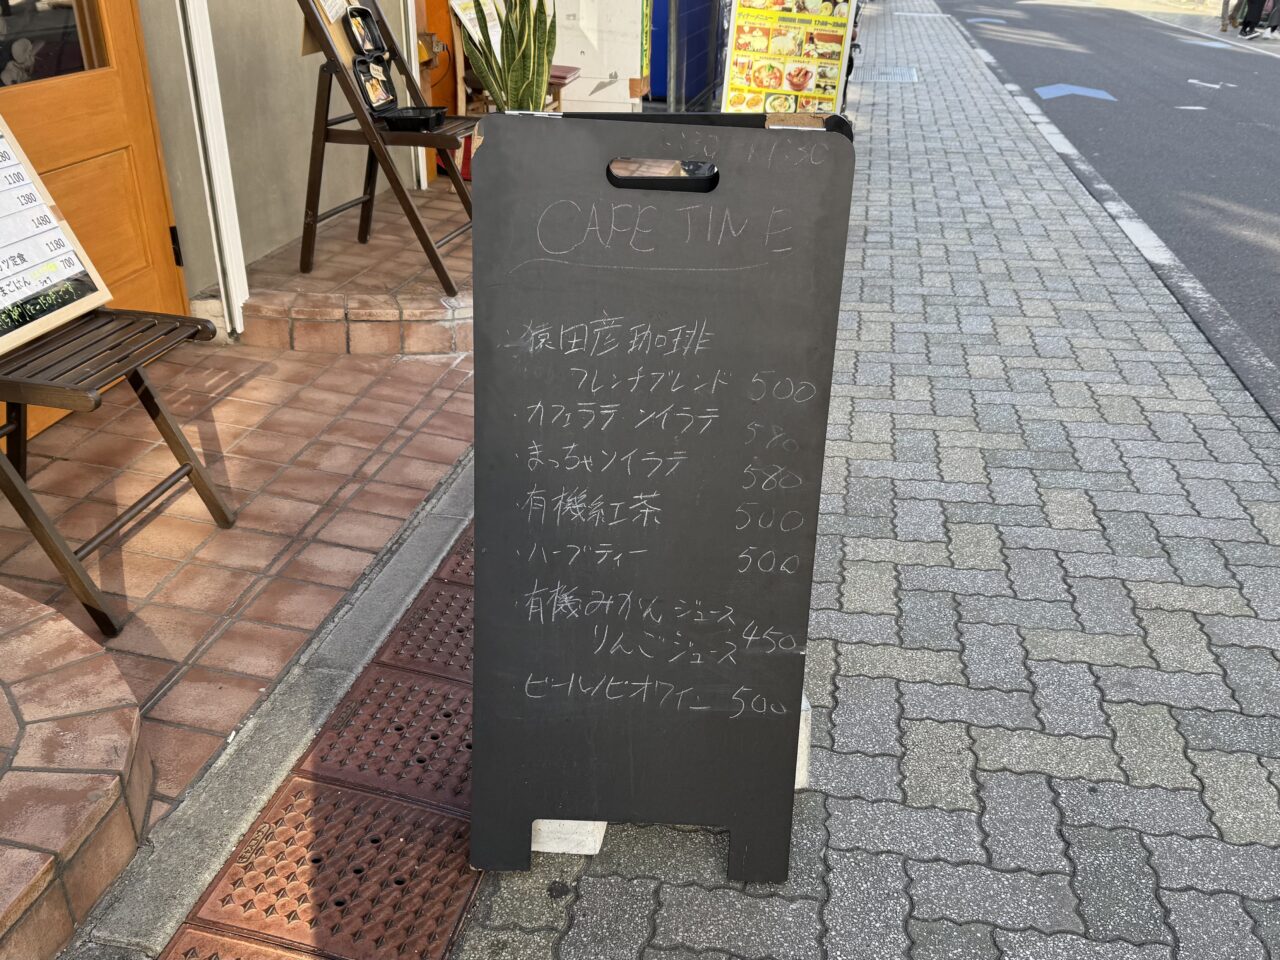 CAFE TIME
・猿田彦珈琲
フレンチブレンド 500
・カフェラテ ソイラテ 580
・まっちゃソイラテ 580
・有機紅茶 500
・ハーブティー 500
・有機みかんジュース
りんごジュース 450
・ビール/ビオワイン 500
1100
1380
1480
1180
700
ディナーメニュー